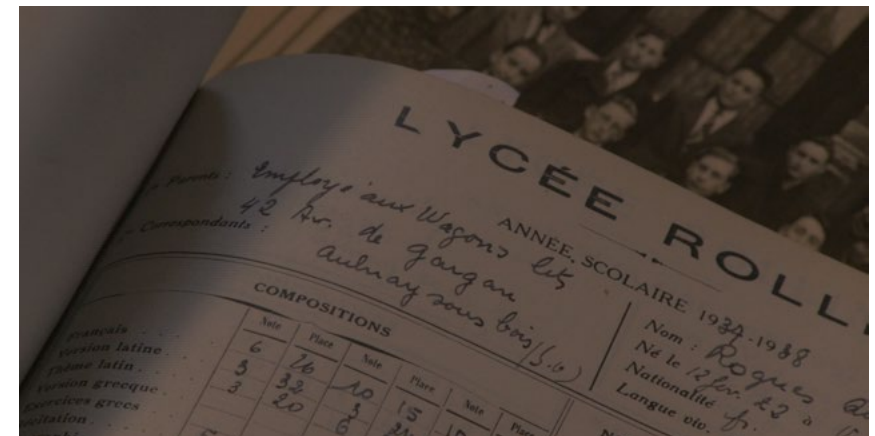 LYCÉE ROLL
ANNÉE SCOLAIRE 1937-1938
Parents : Employé aux Wagons lits
Correspondants : 42 Av. de gargan
aulnay sous bois (S.O)
Nom : Roques
Né le 12 fév. 22 à
Nationalité fr.
Langue viv.
COMPOSITIONS
Note Place Note Place Note Place
Français 6 26 10 15
Version latine 3 32 3
Thème latin 3 20 6
Version grecque
Exercices grecs
Récitation